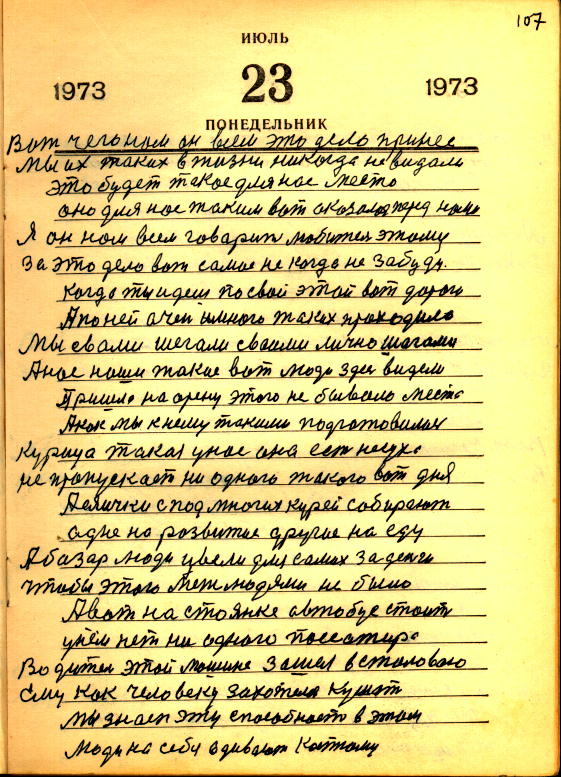 107
ИЮЛЬ
1973 23 1973
ПОНЕДЕЛЬНИК
Вот чего нам он всем это дело принес
Мы их таких в жизни никогда не видали
Это будет такое для нас место
оно для нас таким вот оказалось перед нами
Я он нам всем говарит любитея этому
За это дело вот самое не когда не забуду.
Когда ты идеш по свой этой вот дороге
А по ней очен много таких проходило
Мы свами шегали своими лично шагами
А нас наши такие вот люди здес видели
Пришло на арену этого не бывало места
А как мы к нему такими подготовилис
Курица такая унас она ест
не пропускает ни одного такого вот дня
А еички спод многих курей сабирают
адне на розвитие другие на еду
А базар люди увели для самих За денги
Чтобы этого меж людями не было
А вот на стоянке автобус стоит
унем нет ни одного поссатира
Водител этой машине Зашел встоловаю
Ему как человеку захотелос кушат
Мы знаем эту способност в этом
Люди на себя адивают